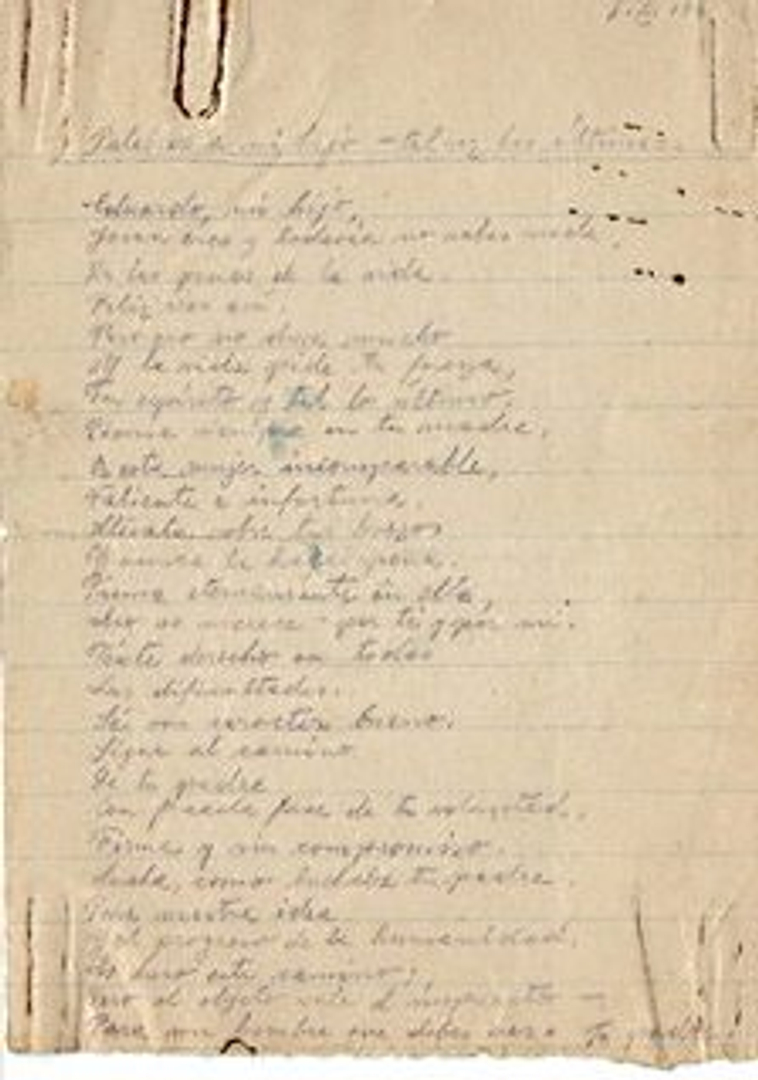 a mi hijo – tal vez los últimos
Eduardo, mi hijo,
Joven eres y todavía no sabes nada,
De las penas de la vida.
Feliz
Pero eso no dura mucho
Y la vida pide tu fuerza,
Tu espíritu y lo último.
Piensa siempre en tu madre,
A esta mujer incomparable,
Valiente e infortuna.
sobre tus brazos
Y nunca la pena.
Piensa eternamente en ella,
se merece – por ti y por mí.
derecho en todas
Las dificultades.
Sé un carácter bueno.
Sigue el camino
De tu padre
Con de tu voluntad.
Firme y sin compromiso.
Lucha, como luchaba tu padre.
Para nuestra idea
Y el progreso de la humanidad.
Es duro este camino;
el objeto vale
Para un hombre que debes ser